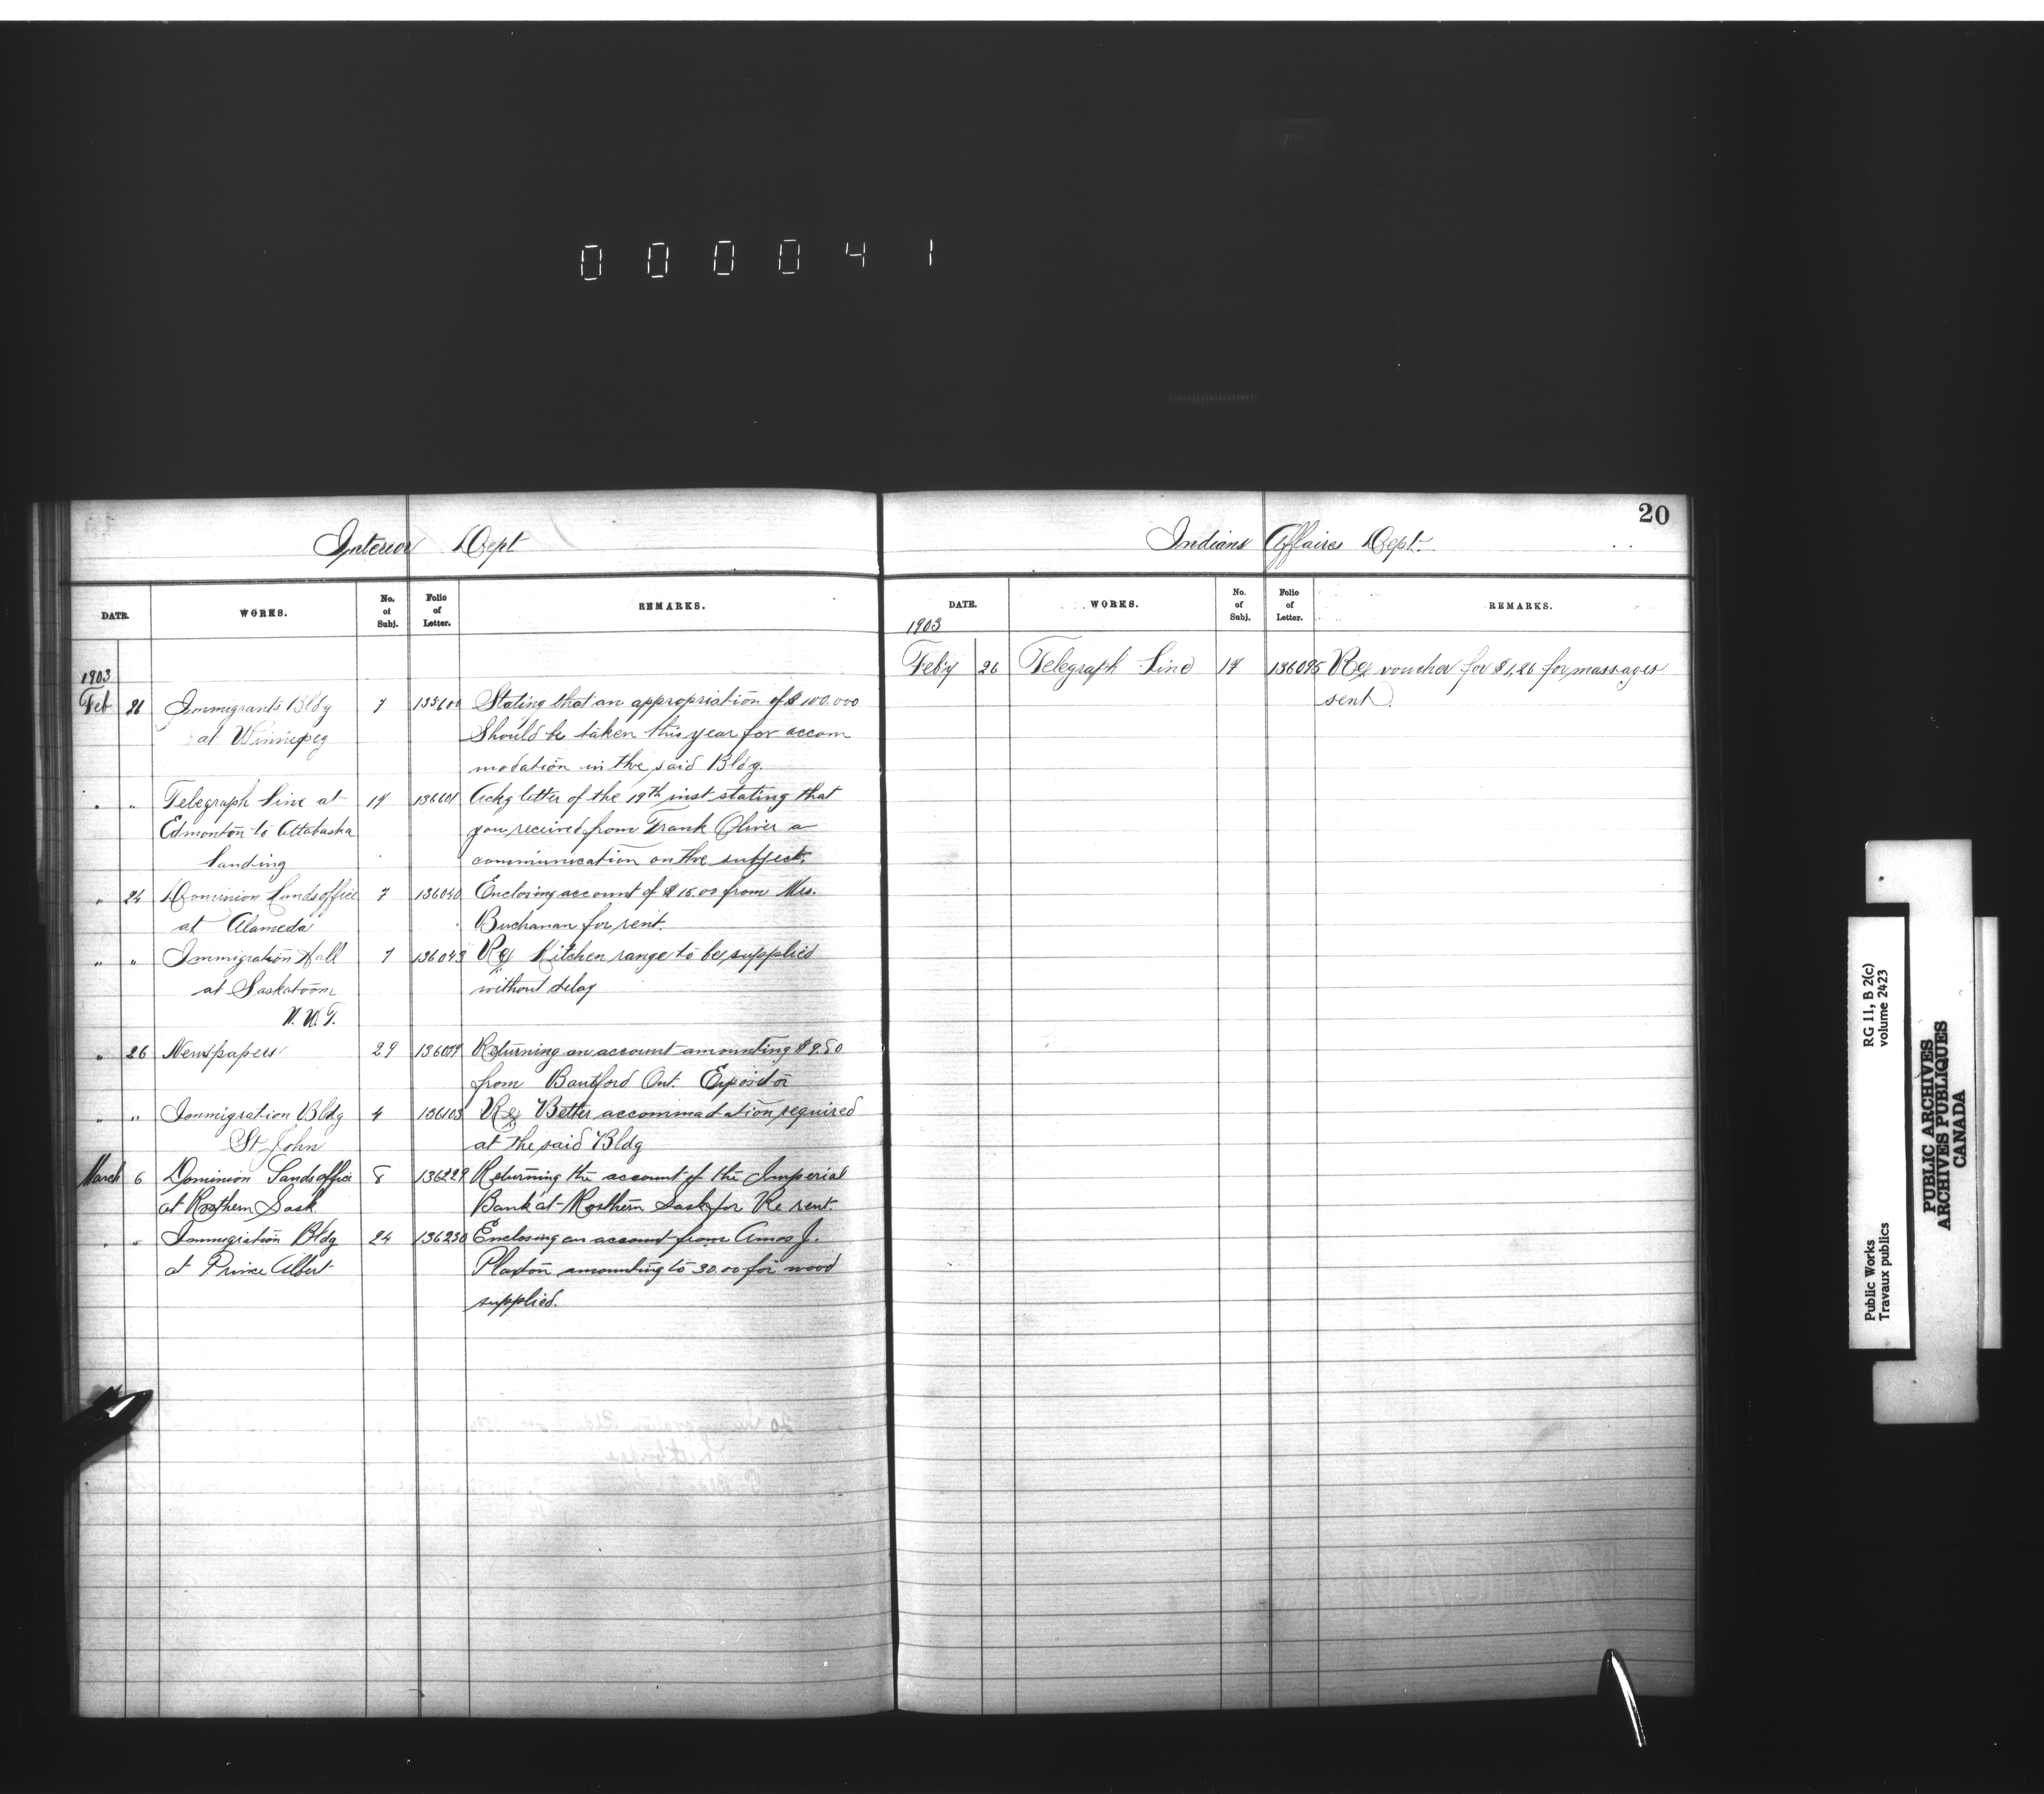 0 0 0 0 4 1
Interior Dept
DATE. WORKS. No. of Subj. Folio of Letter. REMARKS.
1903
Feb 21 Immigrants Bldg 7 Stating that an appropriation of $100.000
at Winnipeg Should be taken this year for accom
modation in the said Bldg.
" " Telegraph Line at 19 136601 Ackg letter of the 19th inst stating that
Edmonton to Attabaska you received from Frank Oliver a
Landing communication on the subject.
" 24 Dominion Lands office 7 136040 Enclosing account of $15.00 from Mrs.
at Alameda Buchanan for rent.
" " Immigration Hall 7 136043 Re Kitchen range to be supplied
at Saskatoon without delay
N.W.T.
" 26 Newspapers 29 136079 Returning an account amounting $9.50
from Bantford Ont. Expositor
" " Immigration Bldg 4 136103 Re Better accommadation required
St John at the said Bldg
March 6 Dominion Lands office 8 136229 Returning the account of the Imperial
at Rosthern Sask Bank at Rosthern Sask for Re rent.
" " Immigration Bldg 24 136230 Enclosing an account from Amos J.
at Prince Albert Plaxton amounting to 30.00 for wood
supplied.
20
Indians Affaires Dept.
DATE. WORKS. No. of Subj. Folio of Letter. REMARKS.
1903
Feb'y 26 Telegraph Line 19 136095 Re voucher for $1,26 for massages
sent.
Public Works RG 11, B 2(c)
Travaux publics volume 2423
PUBLIC ARCHIVES
ARCHIVES PUBLIQUES
CANADA